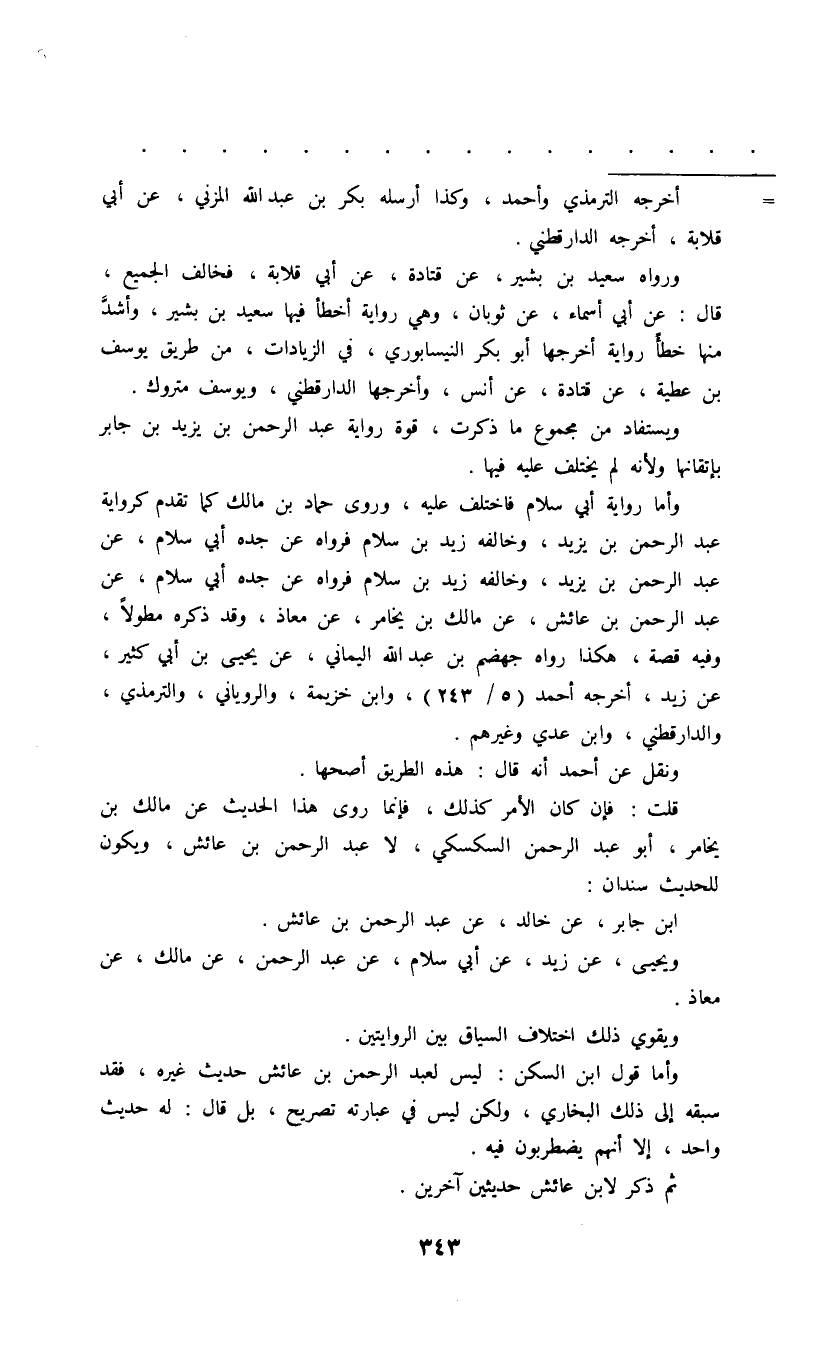 . . . . . . . . . . . . . . . .
= أخرجه الترمذي وأحمد ، وكذا أرسله بكر بن عبد الله المزني ، عن أبي
قلابة ، أخرجه الدارقطني .
ورواه سعيد بن بشير ، عن قتادة ، عن أبي قلابة ، فخالف الجميع ،
قال : عن أبي أسماء ، عن ثوبان ، وهي رواية أخطأ فيها سعيد بن بشير ، وأشدَّ
منها خطأً رواية أخرجها أبو بكر النيسابوري ، في الزيادات ، من طريق يوسف
بن عطية ، عن قتادة ، عن أنس ، وأخرجها الدارقطني ، ويوسف متروك .
ويستفاد من مجموع ما ذكرت ، قوة رواية عبد الرحمن بن يزيد بن جابر
بإتقانها ولأنه لم يختلف عليه فيها .
وأما رواية أبي سلام فاختلف عليه ، وروى حماد بن مالك كما تقدم كرواية
عبد الرحمن بن يزيد ، وخالفه زيد بن سلام فرواه عن جده أبي سلام ، عن
عبد الرحمن بن يزيد ، وخالفه زيد بن سلام فرواه عن جده أبي سلام ، عن
عبد الرحمن بن عائش ، عن مالك بن يخامر ، عن معاذ ، وقد ذكره مطولاً ،
وفيه قصة ، هكذا رواه جهضم بن عبد الله اليماني ، عن يحيى بن أبي كثير ،
عن زيد ، أخرجه أحمد ( ٥ / ٢٤٣ ) ، وابن خزيمة ، والروياني ، والترمذي ،
والدارقطني ، وابن عدي وغيرهم .
ونقل عن أحمد أنه قال : هذه الطريق أصحها .
قلت : فإن كان الأمر كذلك ، فإنما روى هذا الحديث عن مالك بن
يخامر ، أبو عبد الرحمن السكسكي ، لا عبد الرحمن بن عائش ، ويكون
للحديث سندان :
ابن جابر ، عن خالد ، عن عبد الرحمن بن عائش .
ويحيى ، عن زيد ، عن أبي سلام ، عن عبد الرحمن ، عن مالك ، عن
معاذ .
ويقوي ذلك اختلاف السياق بين الروايتين .
وأما قول ابن السكن : ليس لعبد الرحمن بن عائش حديث غيره ، فقد
سبقه إلى ذلك البخاري ، ولكن ليس في عبارته تصريح ، بل قال : له حديث
واحد ، إلا أنهم يضطربون فيه .
ثم ذكر لابن عائش حديثين آخرين .
٣٤٣